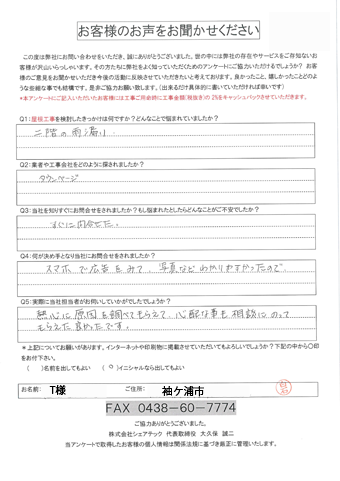 お客様のお声をお聞かせください
この度は弊社にお問い合わせをいただき、誠にありがとうございます。世の中には弊社の存在やサービスをご存知ないお
客様が沢山いらっしゃいます。その方たちに弊社をよく知っていただためのアンケートにご協力いただけるでしょうか? お客
様のご意見をお聞かせいただき今後の活動に反映させていただきたいと考えております。良かったこと、嬉しかったことどのよ
うな些細な事でも結構です。是非ご協力お願い致します。(出来るだけ具体的に書いていただければ幸いです)
*本アンケートにご記入いただいたお客様には工事ご用命時に工事金額(税抜き)の 2%をキャッシュバックさせていただきます。
Q1:屋根工事を検討したきっかけは何ですか?どんなことで悩まれていましたか?
二階の雨漏り.
Q2:業者や工事会社をどのように探されましたか?
タウンページ
Q3:当社を知りすぐにお問合せをされましたか?もし悩まれたとしたらどんなことがご不安でしたか?
すぐに問合せた。
Q4:何が決め手となり当社にお問合せをされましたか?
スマホで広告をみて、写真などわかりやすかったので
Q5:実際に当社担当者がお伺いしていかがでしたでしょうか?
熱心に原因を調べてもらえて、心配な事も相談にのって
もらえた良かったです。
*上記についてお願いがあります。インターネットや印刷物に掲載させていただいてもよろしいでしょうか?下記の中から〇印
をお付下さい。
( )名前を出してもよい (○)イニシャルなら出してもよい
お名前: T様 ご住所: 袖ケ浦市
FAX 0438-60-7774
ご協力ありがとうございました。
株式会社シェアテック 代表取締役 大久保 誠二
当アンケートで取得したお客様の個人情報は関係法規に基づき厳正に管理いたします。